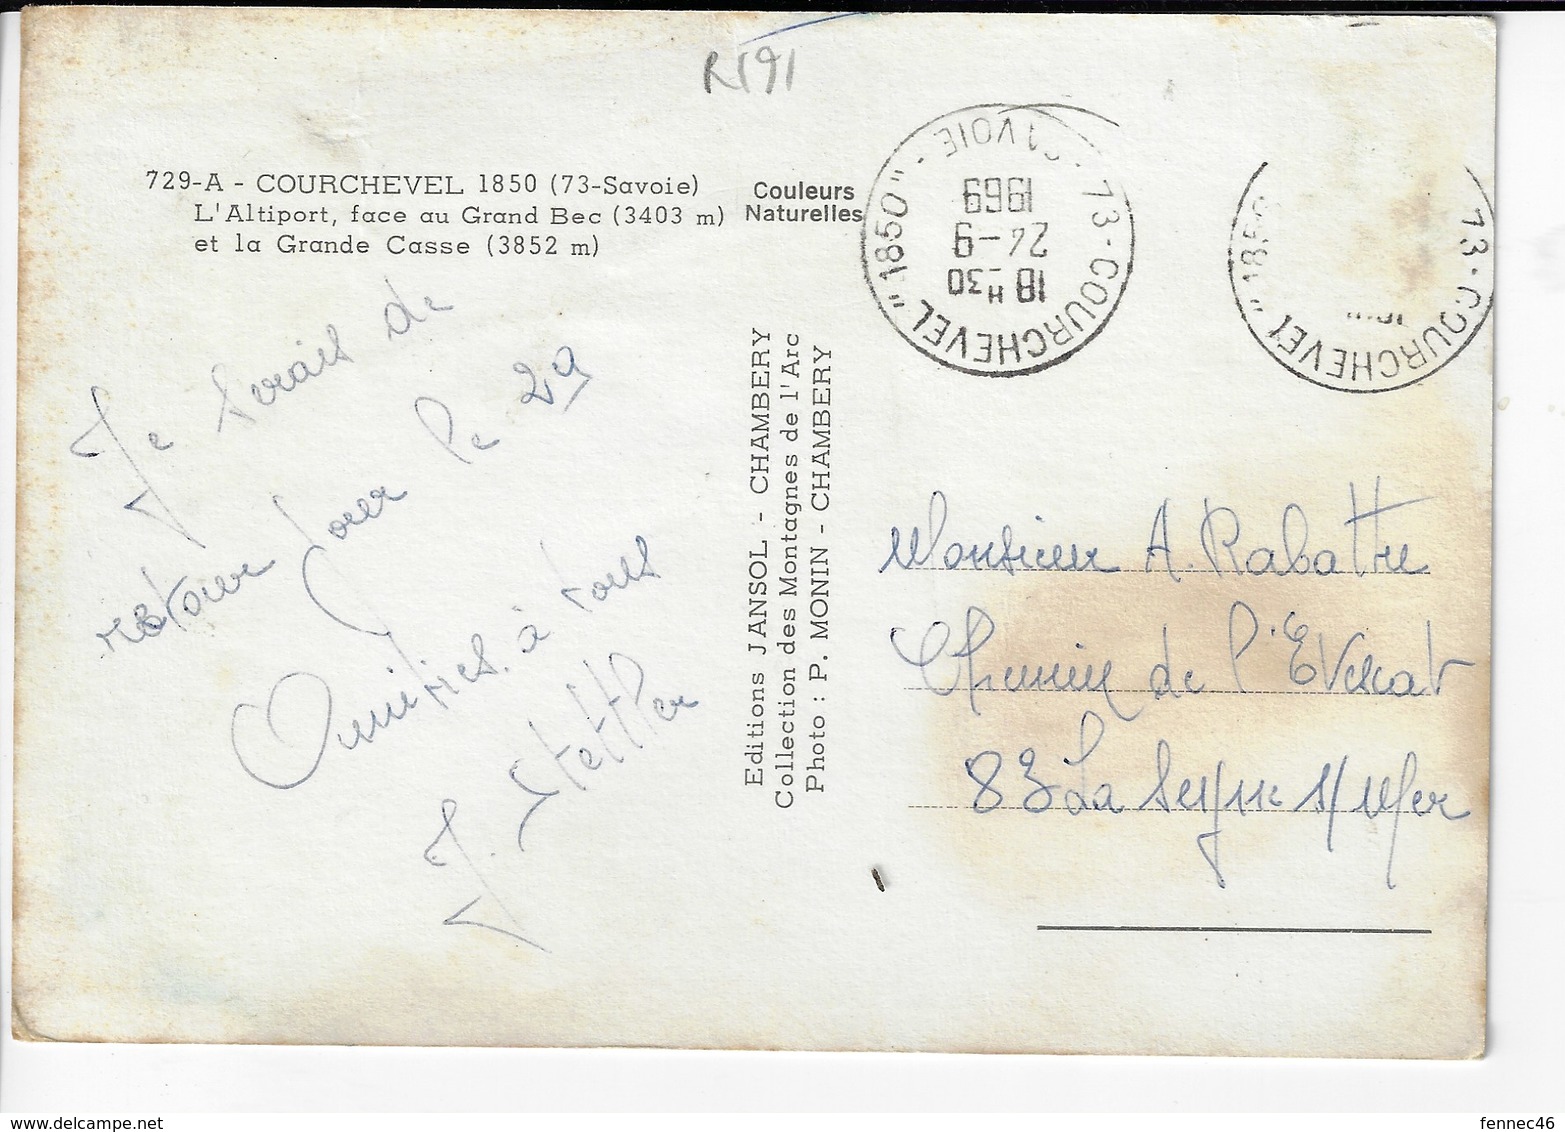 R191
729-A - COURCHEVEL 1850 (73-Savoie)
L'Altiport, face au Grand Bec (3403 m)
et la Grande Casse (3852 m)
Couleurs
Naturelles
73-COURCHEVEL "1850" - SAVOIE
18 H 30
24-9
1969
73-COURCHEVEL "1850
Je serais de
retour pour le 29
Amitiés à tous
J. Stettler
Editions JANSOL - CHAMBERY
Collection des Montagnes de l'Arc
Photo : P. MONIN - CHAMBERY
Monsieur A. Rabattu
Chemin de l'Evescat
83 La Seyne s/Mer
fennec46